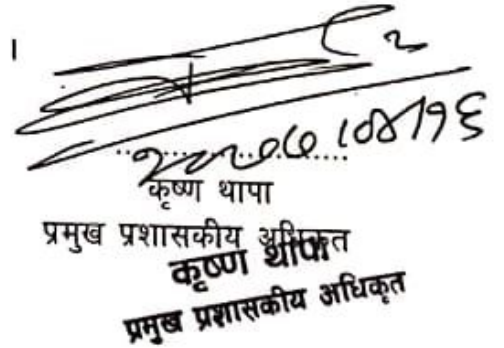 ।
कृष्ण थापा
प्रमुख प्रशासकीय अधिकृत
कृष्ण थापा
प्रमुख प्रशासकीय अधिकृत